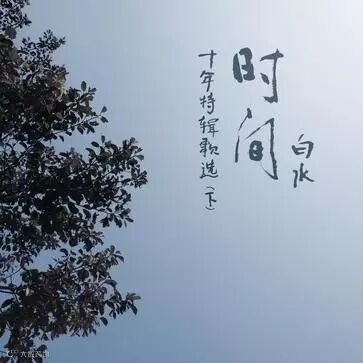 时间
白水
十年特辑歌选(下)